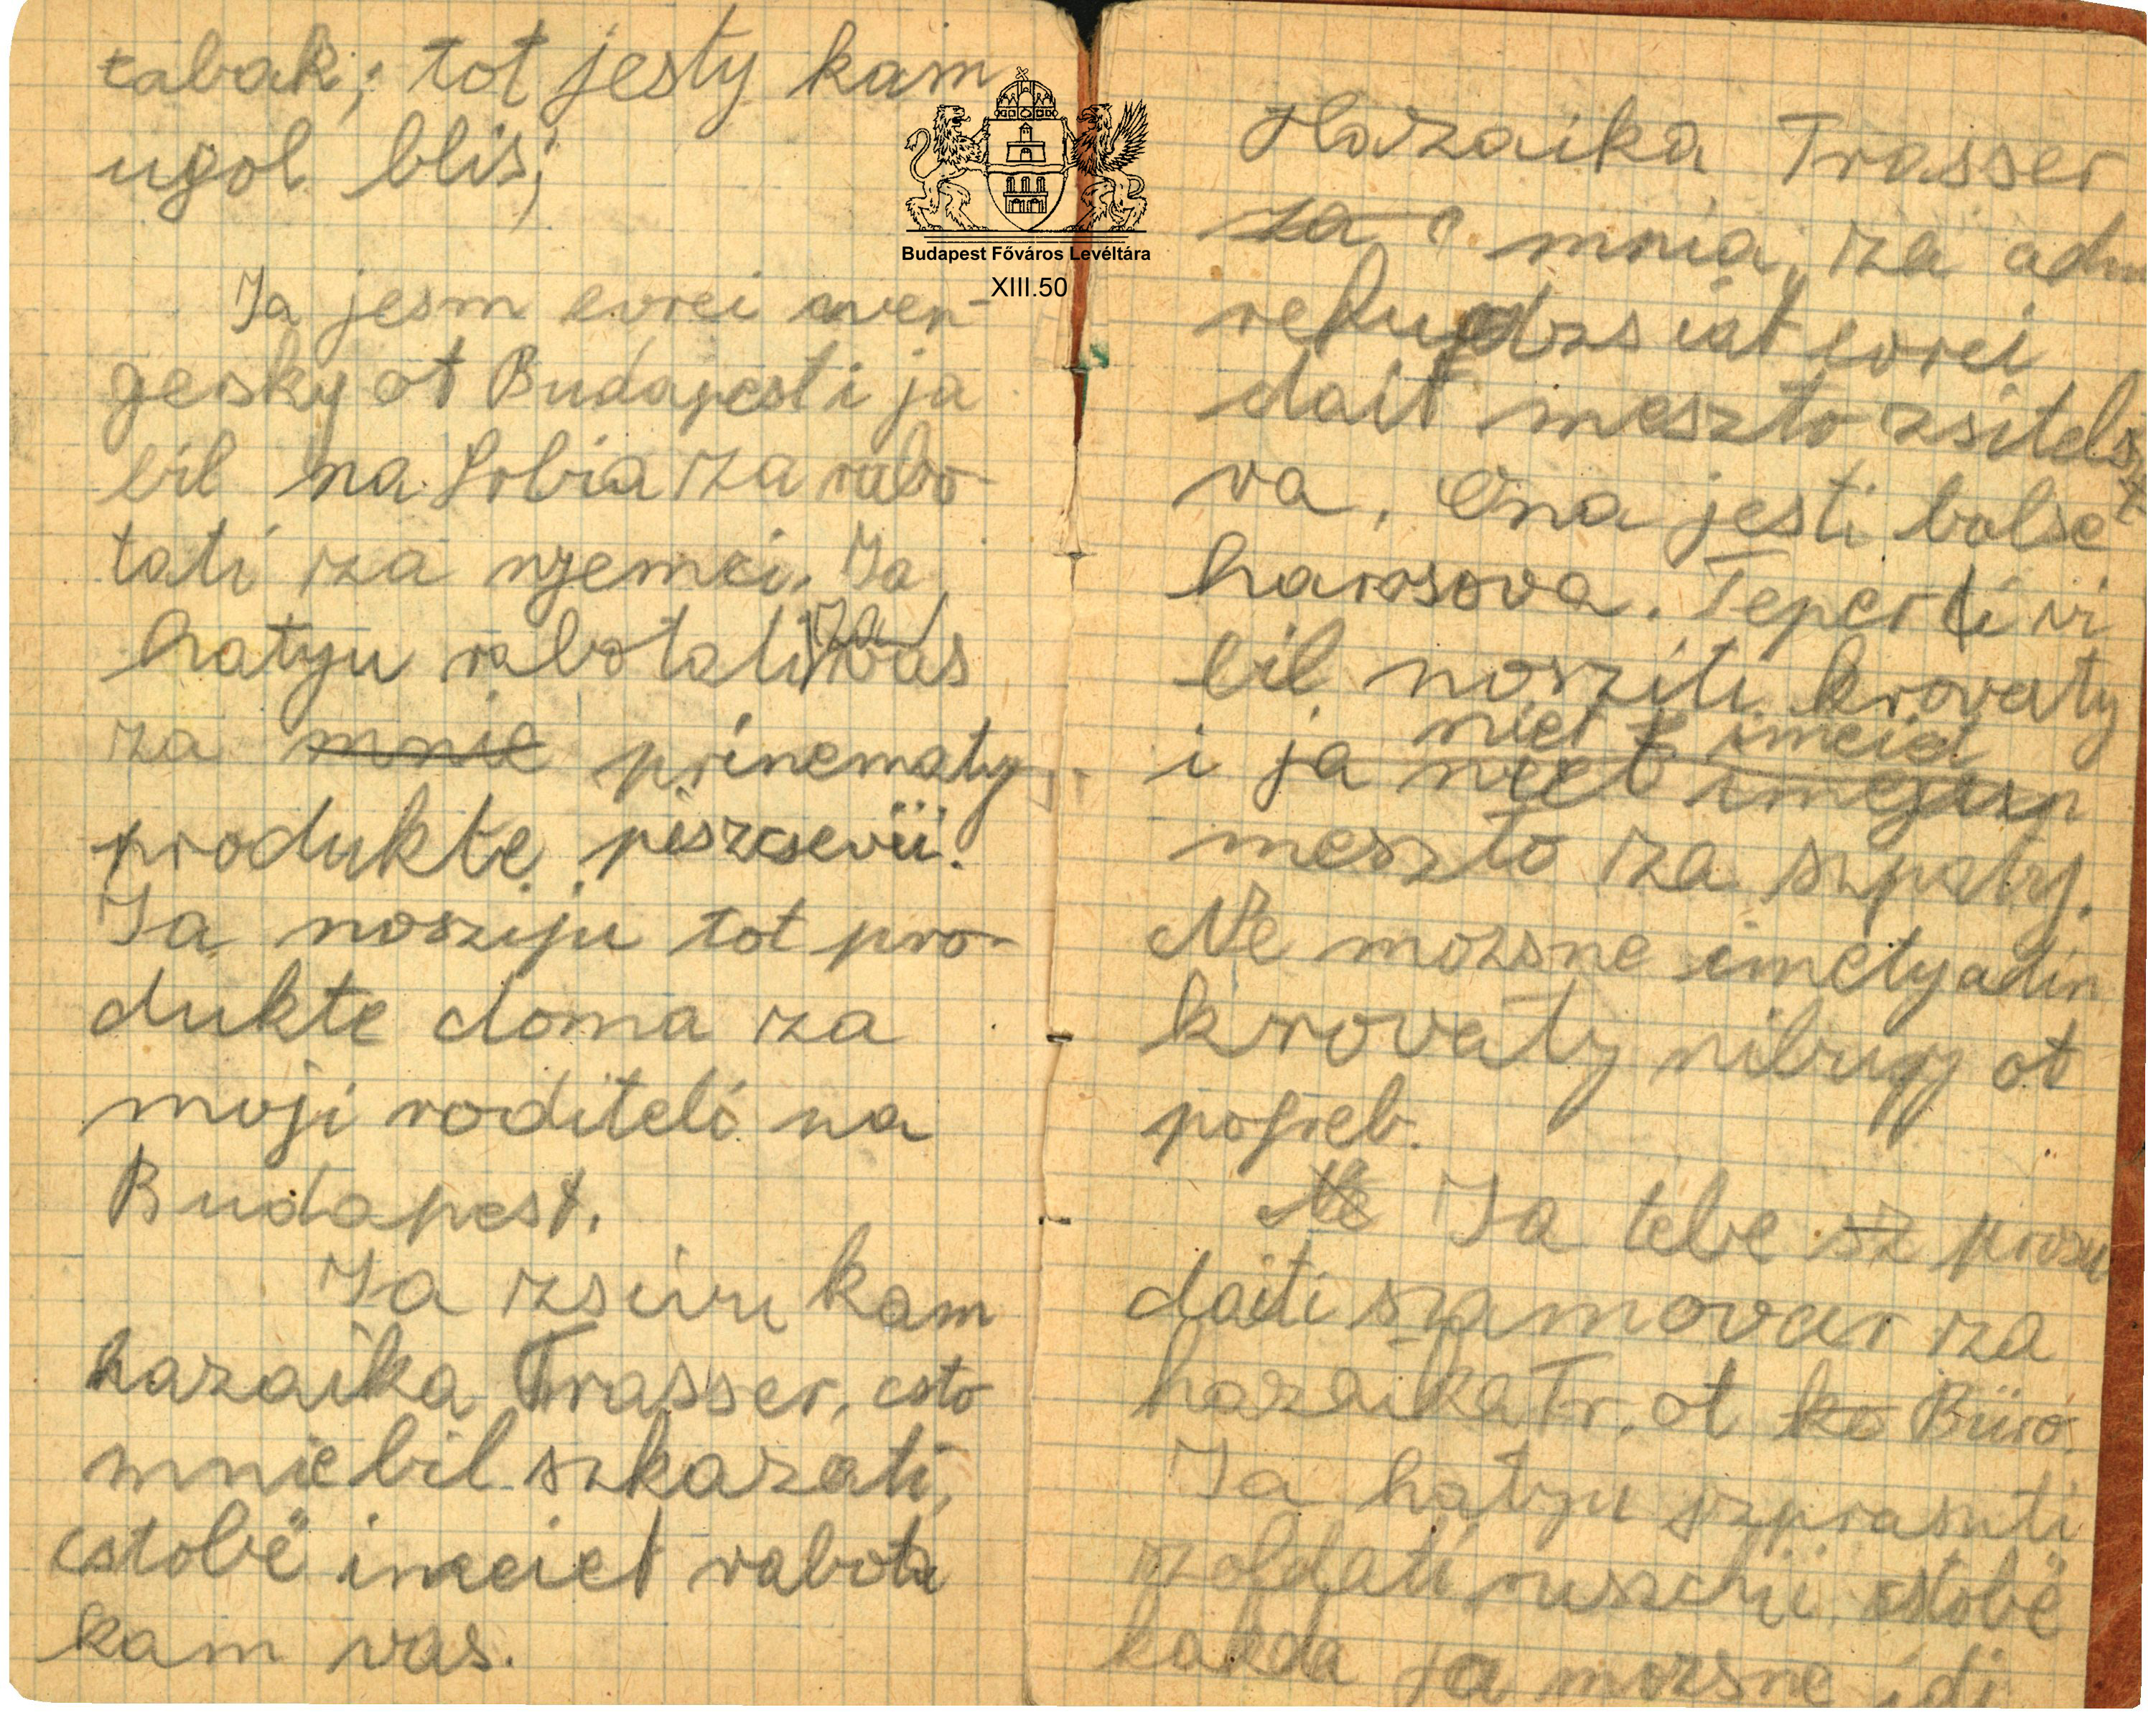 tabak; tot jesty kam
ugol blis;
Ja jesm evrei aven-
gersky ot Budapesti ja
bil na Srbia za rabo-
tati za njemci. Ja
hatyu rabotati za vas
za mnie prinematy
produkte piszcsevii.
Ja nosziju tot pro-
dukte doma za
moji roditeli na
Budapest.
Ja zsivu kam
hazaika Trasser, csto
mnie bil szkazati,
cstobë imeiet rabota
kam vas.
Budapest Főváros Levéltára
XIII.50
Hazaika Trasser
za mnia, za
evrei
dait meszto zsitelsz
va. Ona jesti bolse
harosova. Teperti vi
bil nosziti krovaty
niet imeiet
i ja niet
meszto za szpaty.
Ne mozsne imety adin
krovaty nibugy ot
pogreb.
Ne Ja tebe sz prosu
daiti szamovar za
hazaika Tr. ot ko Büró.
Ja hatyu szprasuti
szoldati ruszkii cstobë
kakda ja mozsne idi